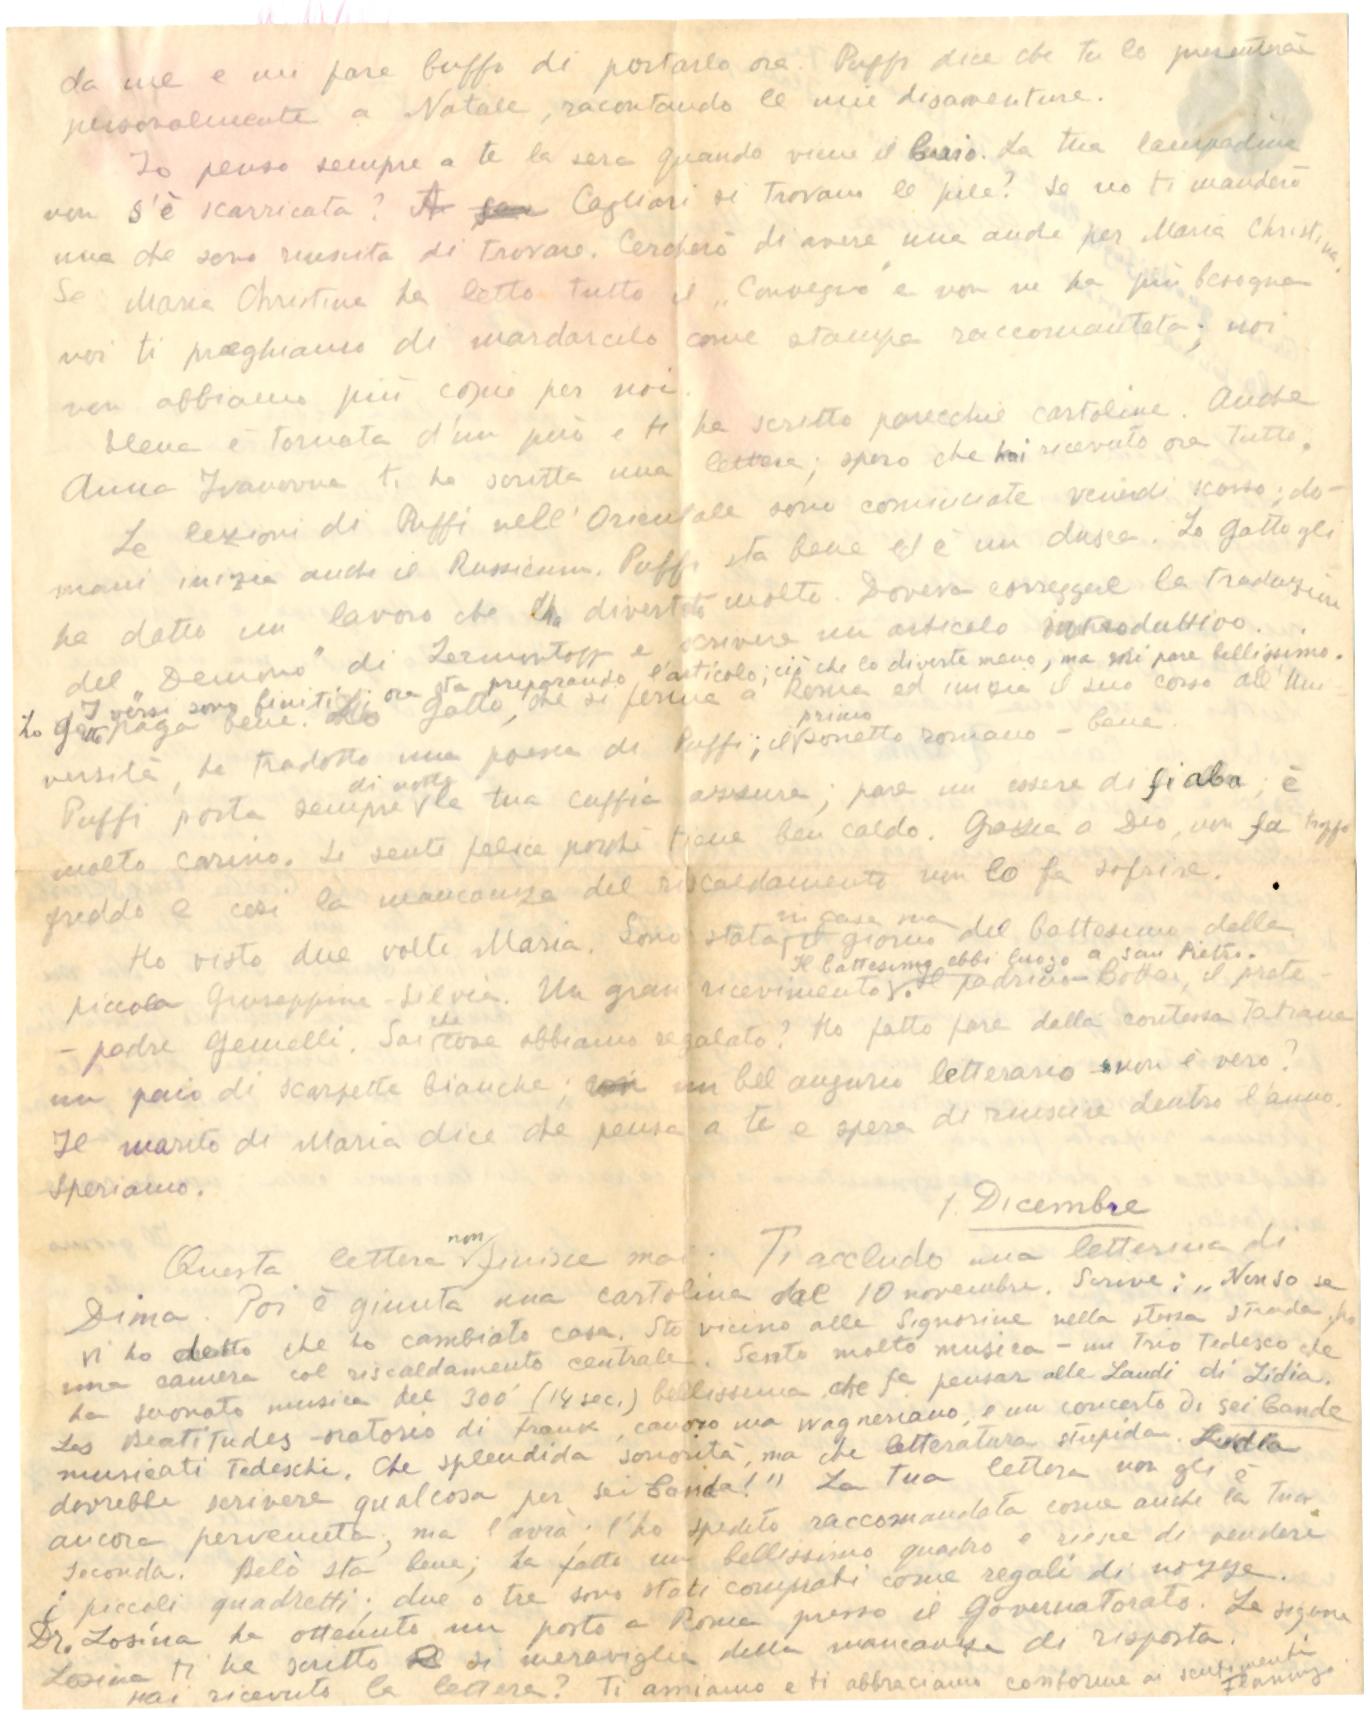 da me e mi pare buffo di portarlo ora. Puffi dice che tu lo presenterai
personalmente a Natale, racontando le mie disavventure.
Io penso sempre a te la sera quando viene il buio. La tua lampadina
non s'è scarricata? A Cagliari si trovano le pile? Se no ti manderò
una che sono riuscita di trovare. Cercherò di avere una anche per Maria Christina.
Se Maria Christina ha letto tutto il „Convegno" e non ne ha più besogna
noi ti preghiamo di mardarcelo come stampa raccomantata; noi
non abbiamo più copie per noi.
Elena è tornata d'un più e ti ha scritto parecchie cartoline. Anche
Anna Ivanovna ti ha scritta una lettera; spero che hai ricevuto ora tutto.
Le lezioni di Puffi nell'Orientale sono cominciate venerdi scorso; do-
mani inizia anche il Russicum. Puffi sta bene ed è un dusca. Lo Gatto gli
ha datto un lavoro che l'ha divertito molto. Doveva correggere la traduzione
del „Demone" di Lermontoff e scrivere un articolo introduttivo.
I versi sono finiti; ora sta preparando l'articolo; ciò che lo diverte meno, ma mi pare bellissimo.
Lo Gatto paga bene. Lo Gatto, che si ferma a Roma ed inizia il suo corso all'Uni-
versità, ha tradotto una poesia di Puffi; il primo sonetto romano – bene.
Puffi porta sempre di notte la tua cuffia azzura; pare un essere di fiaba; è
molto carino. Si sente felice perché tiene ben caldo. Grazie a Dio, non fa troppo
freddo e cosi la mancanza del riscaldamento non lo fa sofrire.
Ho visto due volte Maria. Sono stata in casa sua il giorno del battesimo della
piccola Giuseppina-Silvia. Un gran ricevimento. Il battesimo ebbi luogo a San Pietro. Il padrino – Bottai, il prete –
– padre Gemelli. Sai che cosa abbiamo regalato? Ho fatto fare dalla contessa Tatiana
un paio di scarpette bianche; un bel augurio letterario – non è vero?
Il marito di Maria dice che pensa a te e spera di riuscire dentro l'anno.
Speriamo.
1. Dicembre
Questa lettera non finisce mai. Ti accludo una letterina di
Dima. Poi è giunta una cartolina del 10 novembre. Scrive: „Non so se
vi ho detto che ho cambiato casa. Sto vicino alle Signorine nella stessa strada, ho
una camera col riscaldamento centrale. Sento molto musica – un trio tedesco che
ha suonato musica del 300' (14 sec.) bellissima che fa pensar alle Laudi di Lidia.
Les Beatitudes – oratorio di Frank, canoro ma wagneriano, e un concerto di sei bande
musicati tedeschi. Che splendida sonorità, ma che letteratura stupida. Lidia
dovrebbe scrivere qualcosa per sei banda!" La tua lettera non gli è
ancora pervenuta, ma l'avrà; l'ho spedito raccomandata come anche la tua
seconda. Belò sta bene; ha fatto un bellissimo quadro e riesce di vendere
i piccoli quadretti; due o tre sono stati comprati come regali di nozze.
Dr. Losina ha ottenuto un posto a Roma presso il Governatorato. La signora
Losina ti ha scritto e si meraviglia della mancanza di risposta.
Hai ricevuto la lettera? Ti amiamo e ti abbracciamo conforme ai sentimenti
Flamingo